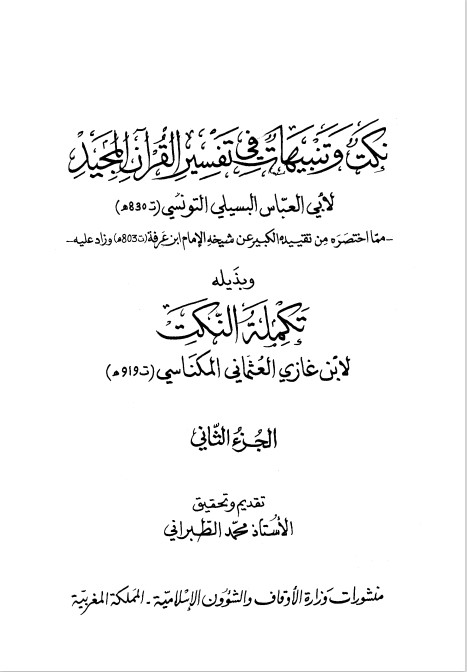 نكت وتنبيهات في تفسير القرآن المجيد
لأبي العباس البسيلي التونسي (ت 830هـ)
- مما اختصره من تقييده الكبير عن شيخه الإمام ابن عرفة (ت 803هـ) وزاد عليه -
وبذيله
تكملة النكت
لابن غازي العثماني المكناسي (ت 919هـ)
الجزء الثاني
تقديم وتحقيق
الأستاذ محمد الطبراني
منشورات وزارة الأوقاف والشؤون الإسلامية - المملكة المغربية